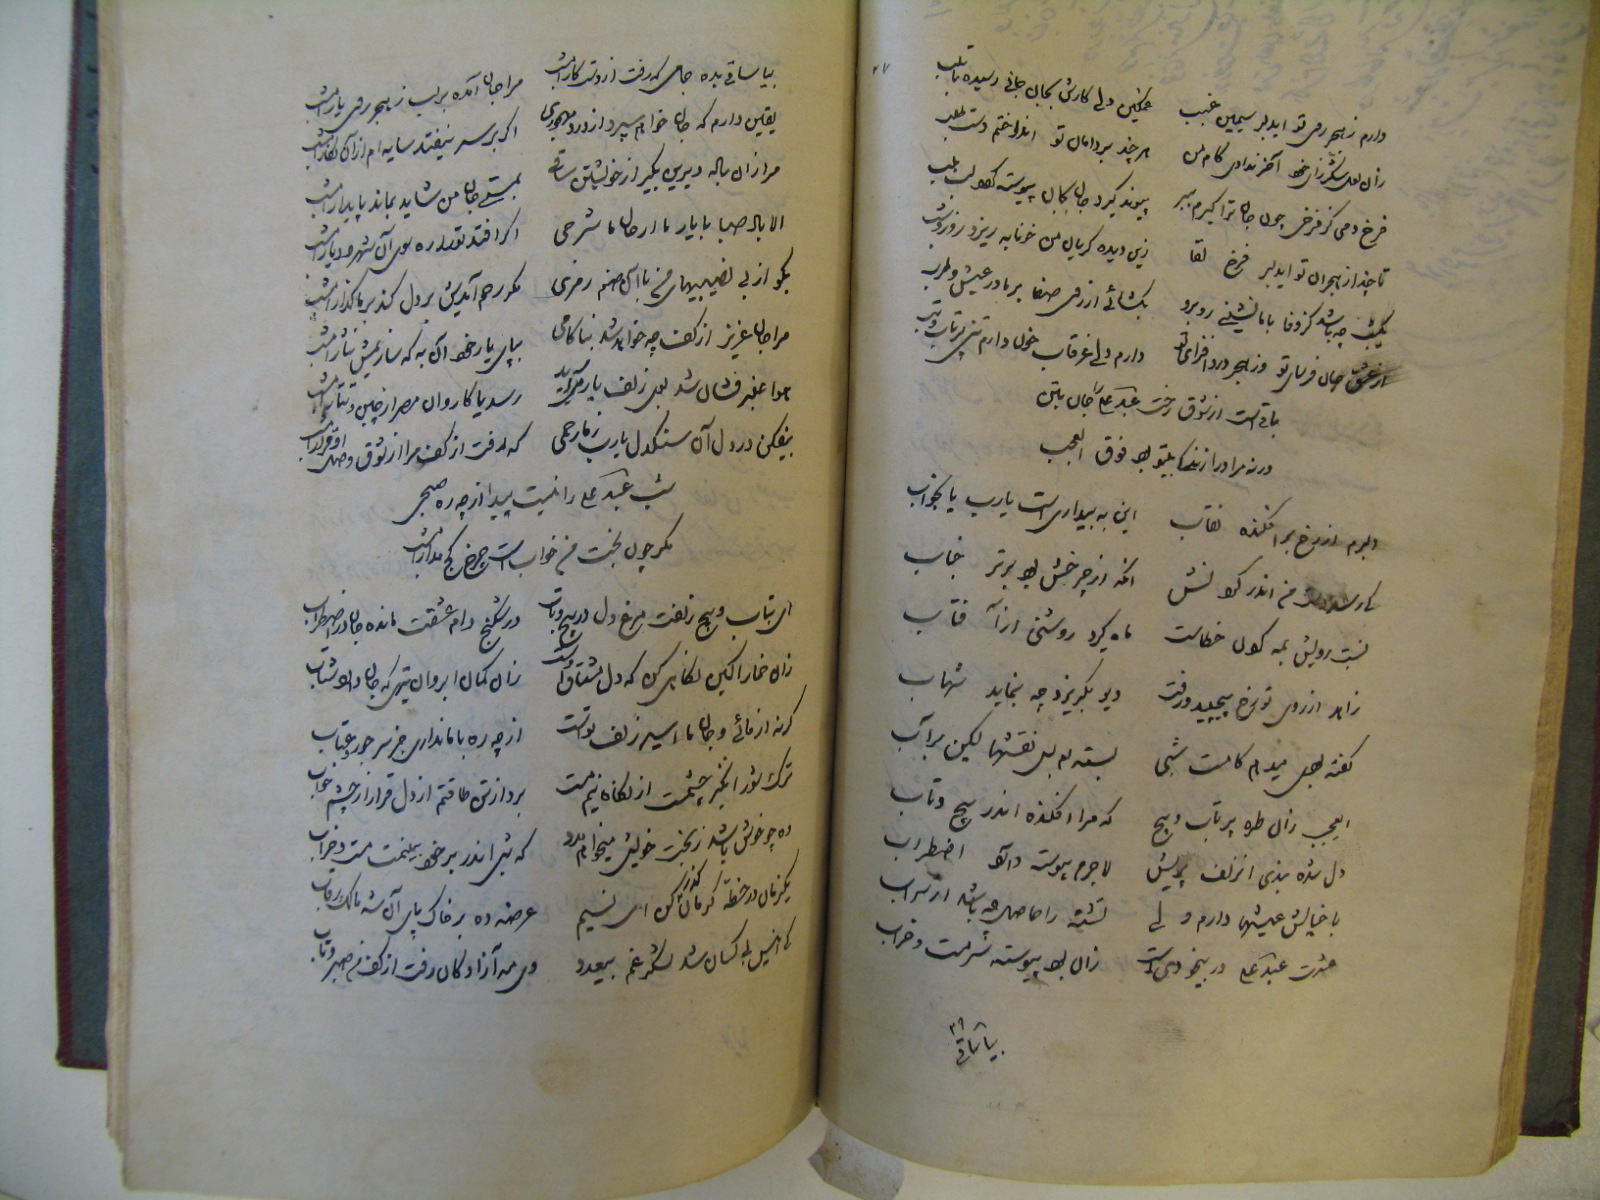 ۲۷
دارم ز هجر روی تو ای دلبر سیمین غبغب
غمگین دلی کارش بجان جانی رسیده تا بلب
زان لعل شکرزای خود آخر ندادی کام من
هر چند بر دامان تو انداختم دست طلب
فرخ دمی کز فرخی چون جان ترا گیرم ببر
پیوند گیرد جان بجان پیوسته لب بلب
تا چند از هجران تو ای دلبر فرخ لقا
زین دیده گریان من خونابه ریزد روز و شب
یکشب چه باشد کز وفا با ما نشینی روبرو
بگشائی از روی صفا بر ما در عیش و طرب
از عشق جان فرسای تو وز هجر درد افزای تو
دارم دلی غرقاب خون دارم تنی پر تاب و تب
باقیست از شوق رخت عبدعلی را جان بتن
ورنه مرا ورا زندگی بیتو بود فوق العجب
دلبرم از رخ برافکنده نقاب
این به بیداری است یارب یا بخواب
من اندر کوئش
آنکه از چرخش بود برتر جناب
نسبت رویش بمه کردن خطاست
ماه گیرد روشنی از آفتاب
زاهد از روی تو رخ پیچید و رفت
دیو بگریزد چه بنماید شهاب
گفته بودی میدهم کامت شبی
بسته‌ام بس نقشها لیکن بر آب
ای عجب زان طره پر تاب و پیچ
که مرا افکنده اندر پیچ و تاب
دل شده بندی از زلف پریش
لاجرم پیوسته دارد اضطراب
با خیالش عیشها دارم ولی
تشنه را حاصل چه باشد از سراب
عشرت عبدعلی در بیخودی است
زان بود پیوسته سرمست و خراب
۳۹
بیا ساقی
بیا ساقی بده جامی که رفت از دست کار امشب
مرا جان آمده بر لب ز هجر روی یار امشب
یقین دارم که جان خواهم سپرد از درد مهجوری
اگر بر سر نیفتد سایه‌ام از آن نگار امشب
مرا زان باده دیرین بگیر از خویشتن ساقی
بمستی جان من شاید بماند پایدار امشب
الا باد صبا با یار ما از حال ما شرحی
اگر افتد تو را ره سوی آن شهر و دیار امشب
بگو از بی نصیبیهای من با آن صنم رمزی
مگر رحم آیدش بر دل کند بر ما گذار امشب
مرا جان عزیز از کف چه خواهد شد بناکامی
بپای یار خود آن به که سازیمش نثار امشب
هوا عنبر فشان شد بوی زلف یار می‌آید
رسد یا کاروان مصر از چین و تتار امشب
بیفکن در دل آن سنگدل یارب ز ما رحمی
که رفت از کف مرا از شوق وصل او قرار امشب
شب عبدعلی را نیست پیدا از چه ره صبحی
مگر چون بخت من خواب است چرخ کج مدار امشب
ای بتاب و پیچ زلفت مرغ دل در پیچ و تاب
در شکنج دام عشقت مانده جان در اضطراب
زان خمارآگین نگاهی کن که دل مشتاق شد
زان کمان ابروان تیری که جان دارد شتاب
گر نه از مائی و جان ما اسیر زلف توست
از چه ره با ما نداری جز سر جور و عتاب
ترک شور انگیز چشمت از نگاه نیم مست
برد از تن طاقتم از دل قرار از چشم خواب
ده چه خوش باشد ز بخت خویش میخواهم مدد
که شبی اندر بر خود بینمت مست و خراب
یکزمان در خطه کرمان گذر کن ای نسیم
عرضه ده بر خاک پای آن شه مالک رقاب
کای انیس بی کسان شد لشکر غم بیعدد
وی مه آزادگان رفت از کفم صبر و تاب